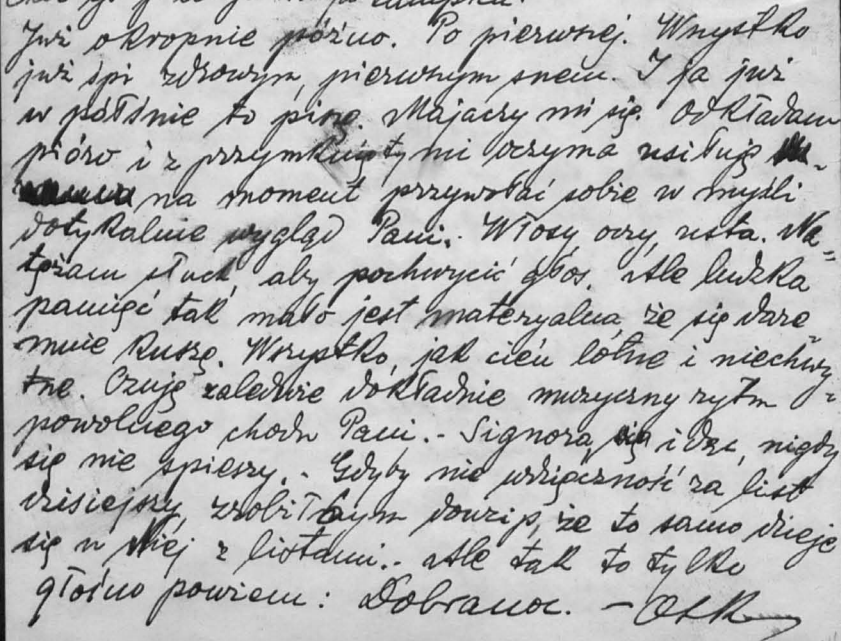 Już okropnie późno. Po pierwszej. Wszystko
już śpi zdrowym, pierwszym snem. I ja już
w półśnie to piszę. Majaczy mi się. Odkładam
pióro i z przymkniętymi oczyma usiłuję
na moment przywołać sobie w myśli
dotykalnie wygląd Pani. Włosy, oczy, usta. Na=
tężam słuch, aby pochwycić głos. Ale ludzka
pamięć tak mało jest materyalna, że się dare=
mnie kuszę. Wszystko, jak cień lotne i niechwy=
tne. Czuję zaledwie dokładnie muzyczny rytm
powolnego chodu Pani. - Signora, idąc, nigdy
się nie spieszy. - Gdyby nie wdzięczność za list
dzisiejszy, zrobiłbym dowcip, że to samo dzieje
się u Niej z listami.. Ale tak to tylko
głośno powiem: Dobranoc. -